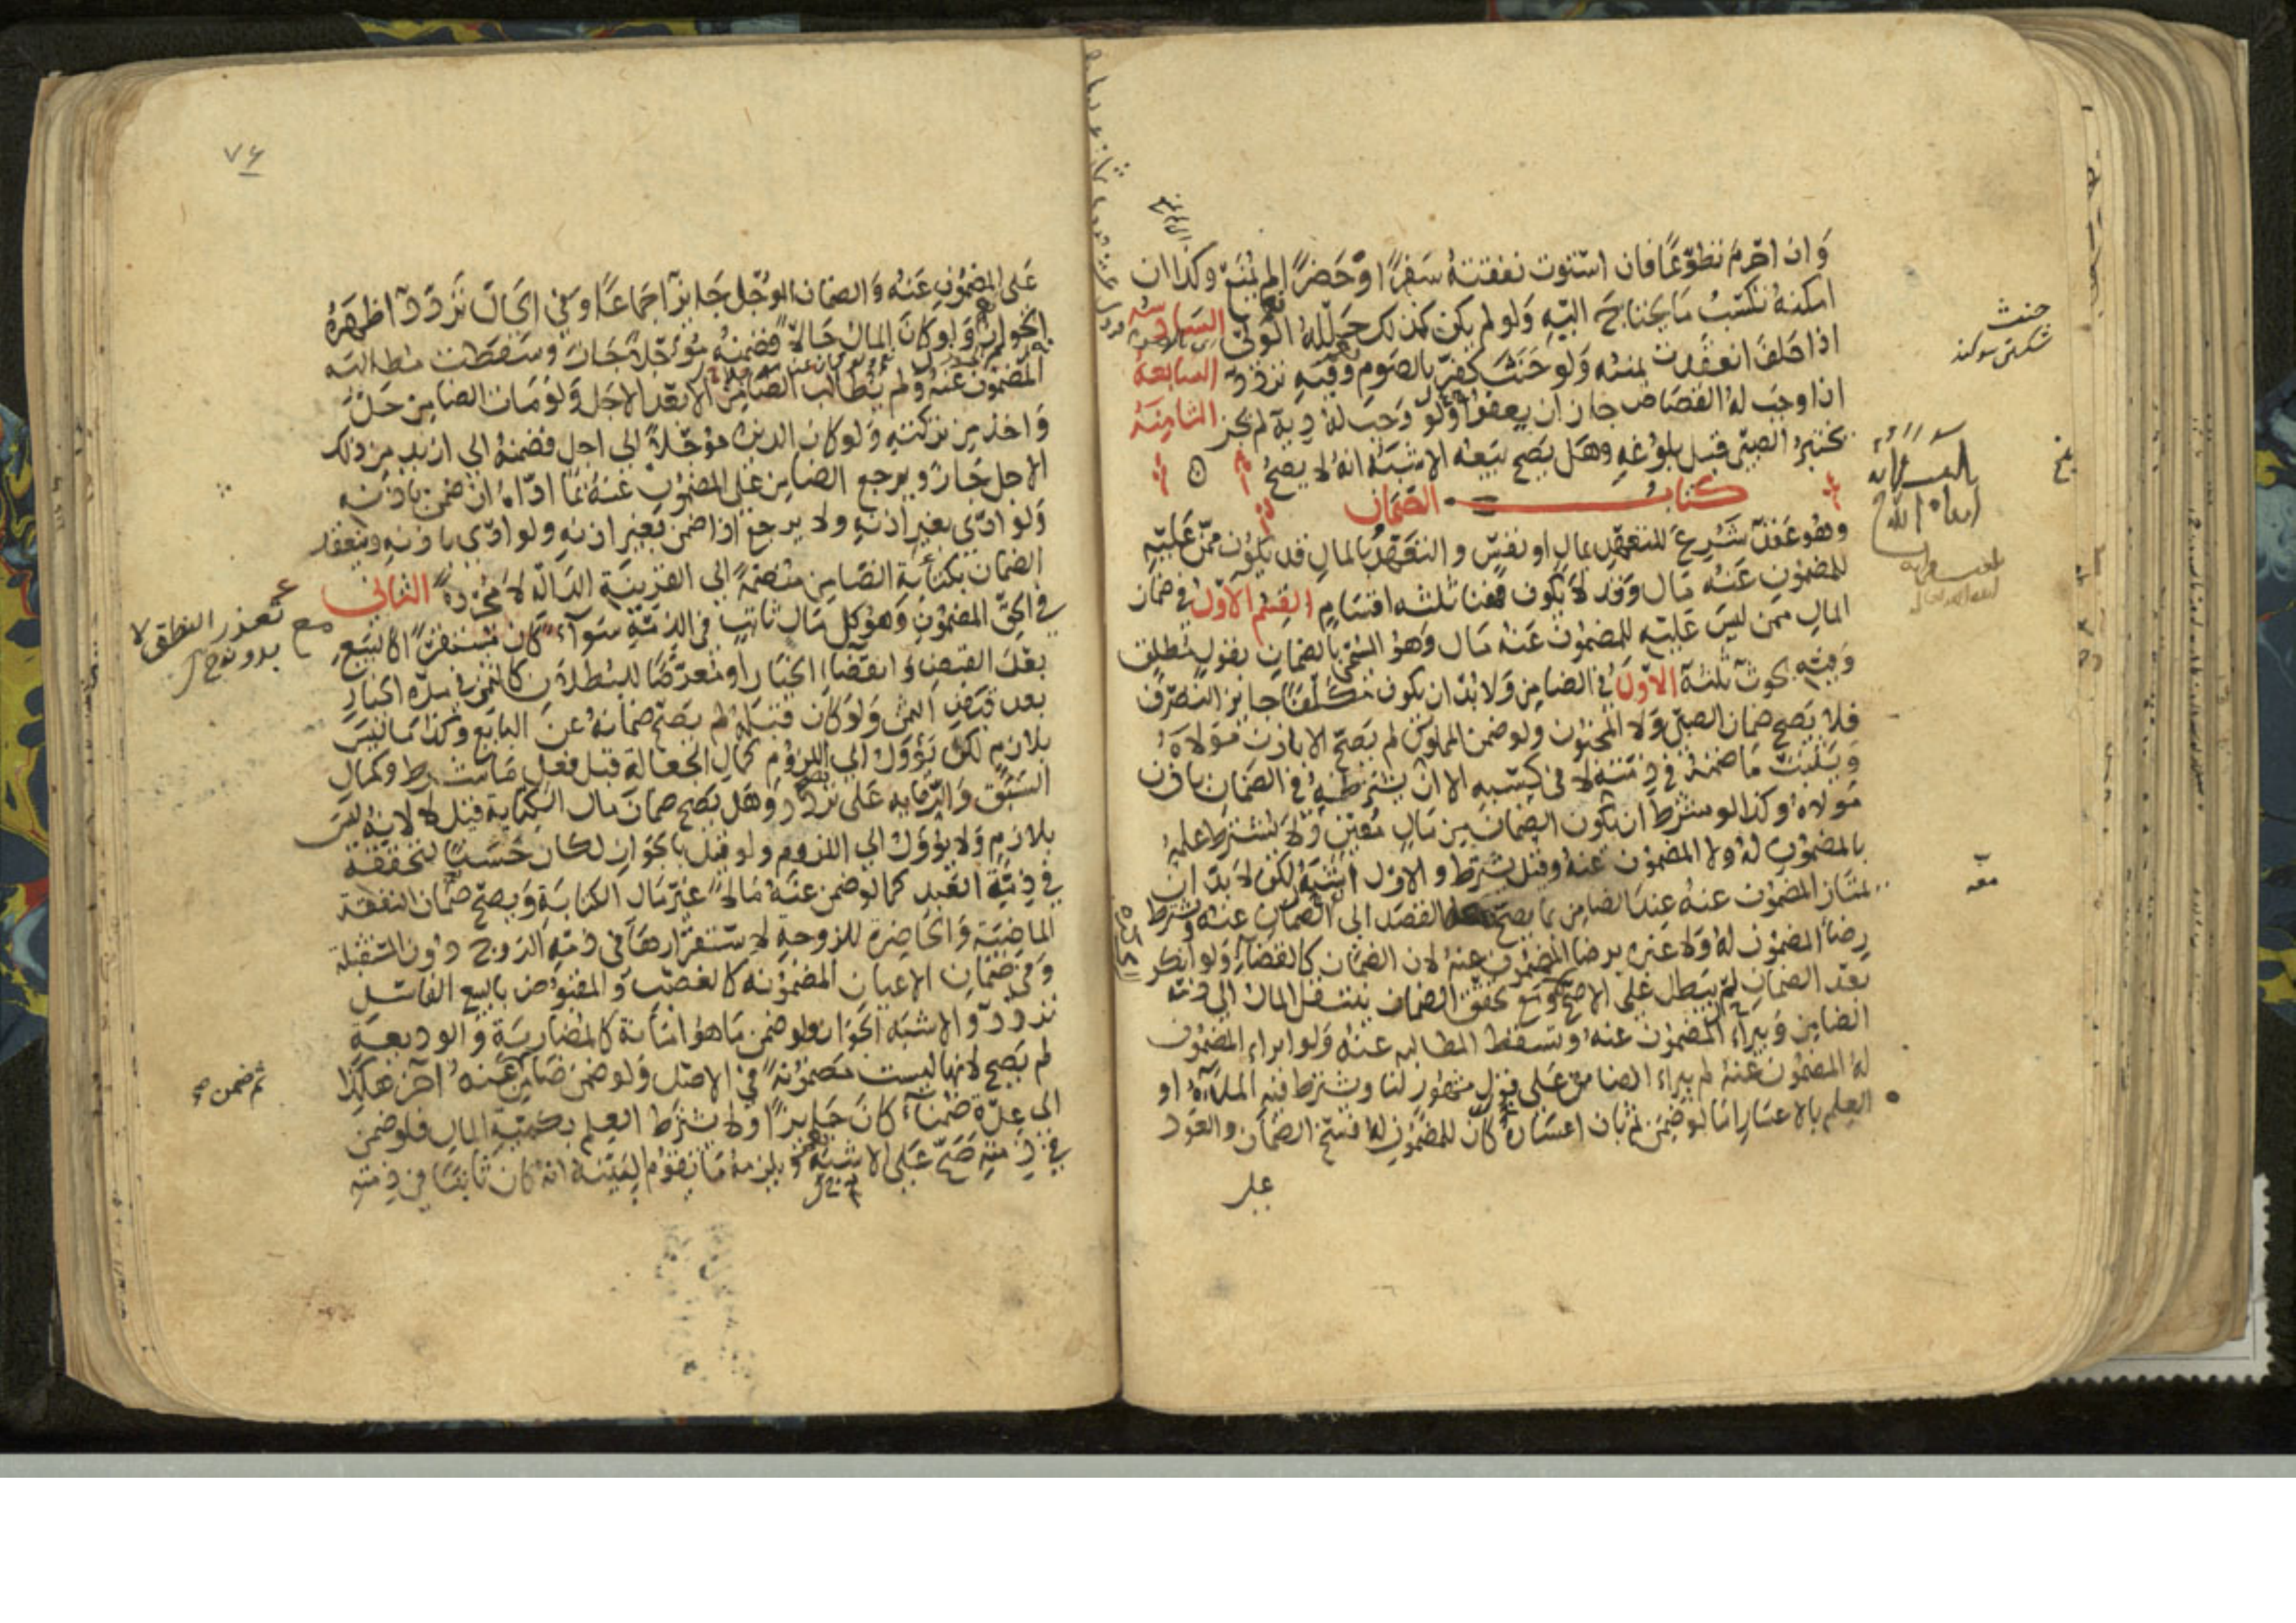 وان احرم تطوعا فان استوت نفقته سفرا وحضرا لم يمنع وكذا ان
امكنه تكسب ما يحتاج اليه ولو لم يكن كذلك حلله الولي السادسة
اذا حلف انعقدت يمينه ولو حنث كفر بالصوم وفيه تردد السابعة
اذا وجب له القصاص جاز ان يعفو ولو وجب له دية لم يجز الثامنة
يختبر الصبي قبل بلوغه وهل يصح بيعه الاشبه انه لا يصح
كتاب الضمان
وهو عقد شرع للتعهد بمال او نفس والتعهد بالمال قد يكون ممن عليه
للمضمون عنه مال وقد لا يكون فهنا ثلثه اقسام القسم الاول في ضمان
المال ممن ليس عليه للمضمون عنه مال وهو المسمى بالضمان بقول مطلق
وفيه بحوث ثلثة الاول في الضامن ولا بد ان يكون مكلفا جايز التصرف
فلا يصح ضمان الصبي ولا المجنون ولو ضمن المملوك لم يصح الا باذن مولاه
ويثبت ما ضمنه في ذمته لا في كسبه الا ان يشترطه في الضمان باذن
مولاه وكذا لو شرط ان يكون الضمان من مال معين ولا يشترط علمه
بالمضمون له ولا المضمون عنه وقيل يشترط والاول اشبه لكن لا بد ان
يمتاز المضمون عنه عند الضامن بما يصح معه القصد الى الضمان عنه ويشترط
رضا المضمون له ولا عبره برضا المضمون عنه لان الضمان كالقضاء ولو انكر
بعد الضمان لم يبطل على الاصح ومع تحقق الضمان ينتقل المال الى ذمة
الضامن ويبراء المضمون عنه وتسقط المطالبه عنه ولو ابراء المضمون
له المضمون عنه لم يبراء الضامن على قول مشهور لنا ويشترط فيه الملاءة او
العلم بالاعسار اما لو ضمن ثم بان اعساره كان للمضمون له فسخ الضمان والعود
على
حنث
شكستن سوكند
معه
٧٤
على المضمون عنه والضمان المؤجل جايز اجماعا وفي الحال تردد اظهره
الجواز ولو كان المال حالا فضمنه مؤجلا جاز وسقطت مطالبة
المضمون عنه ولم يطالب الضامن الا بعد الاجل ولو مات الضامن حل
واخذ من تركته ولو كان الدين مؤجلا الى اجل فضمنه الى ازيد من ذلك
الاجل جاز ويرجع الضامن على المضمون عنه بما اداه ان ضمن باذنه
ولو ادى بغير اذنه ولا يرجع اذا ضمن بغير اذنه ولو ادى باذنه وينعقد
الضمان بكتابة الضامن منضمة الى القرينة الدالة لا مجردة الثاني
في الحق المضمون وهو كل مال ثابت في الذمة سواء كان مستقرا كالبيع
بعد القبض وانقضاء الخيار او متعرضا للبطلان كالثمن في مدة الخيار
بعد قبض الثمن ولو كان قبله لم يصح ضمانه عن البايع وكذا ما ليس
بلازم لكن يؤول الى اللزوم كمال الجعالة قبل فعل ما شرط وكمال
السبق والرمايه على تردد وهل يصح ضمان مال الكتابة قيل لا لانه ليس
بلازم ولا يؤول الى اللزوم ولو قيل بالجواز لكان حسنا لتحققه
في ذمة العبد كما لو ضمن عنه مالا غير مال الكتابة ويصح ضمان النفقة
الماضية والحاضرة للزوجة لاستقرارها في ذمة الزوج دون المستقبلة
وفي ضمان الاعيان المضمونه كالغصب والمقبوض بالبيع الفاسد
تردد والاشبه الجواز ولو ضمن ما هو امانة كالمضاربة والوديعة
لم يصح لانها ليست مضمونة في الاصل ولو ضمن ضامن عنه آخر هكذا
الى عدة ضمناء كان جايزا ولا يشترط العلم بكمية المال فلو ضمن
في ذمته صح على الاشبه ويلزمه ما تقوم البينة انه كان ثابتا في ذمته
مع تعذر النطق لا
بدونه
ثم ضمن